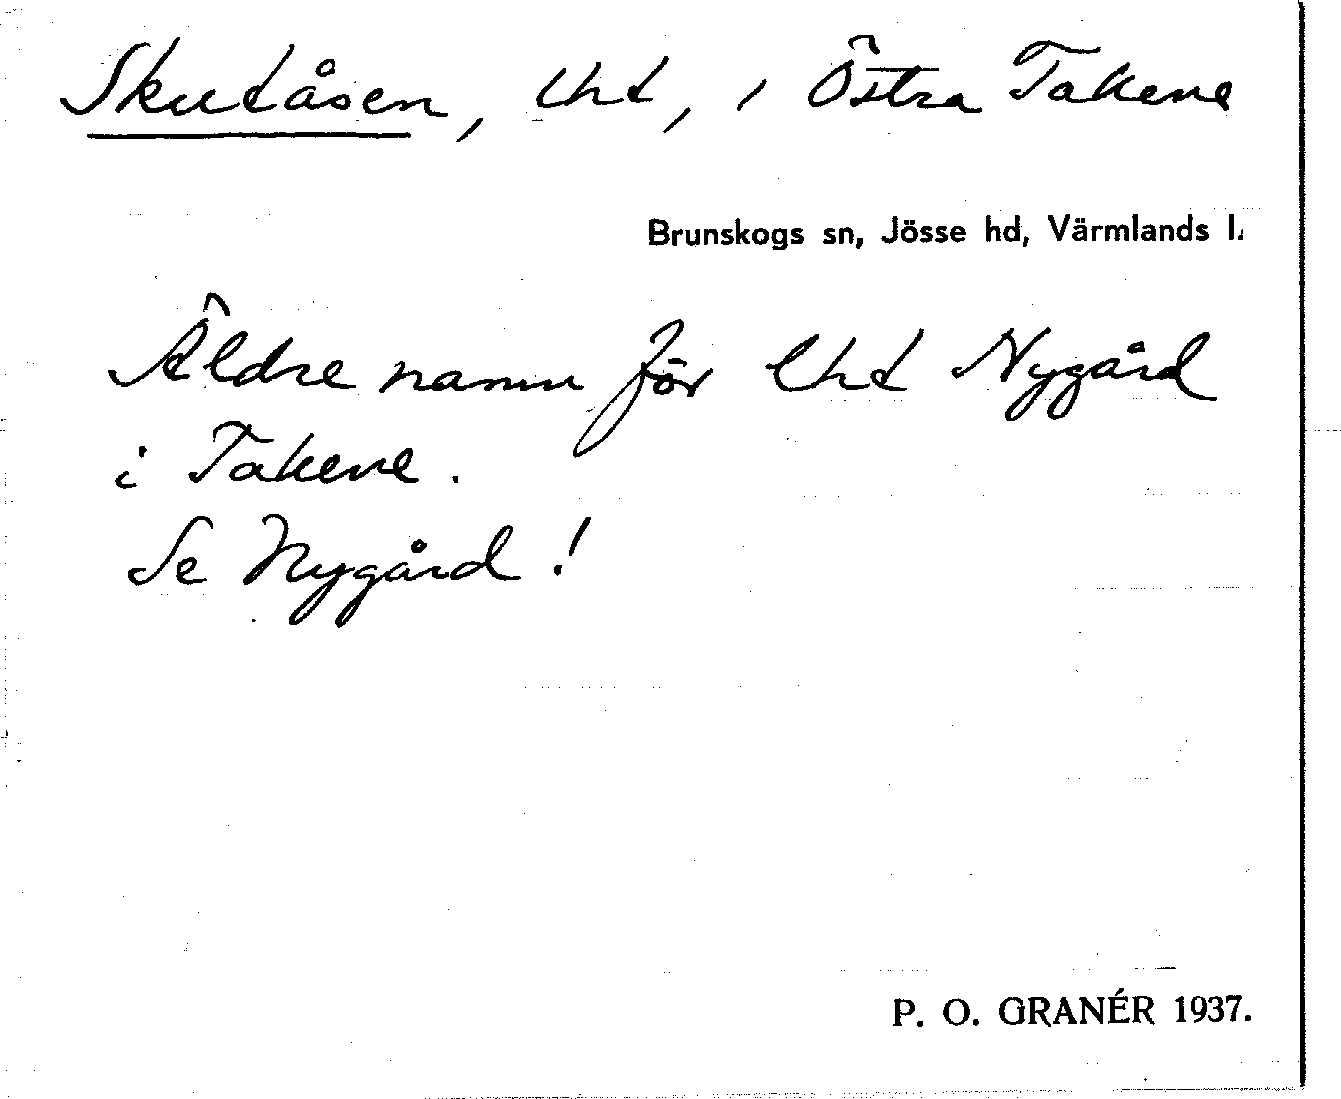 Skutåsen, lht, i Östra Takene
Brunskogs sn, Jösse hd, Värmlands l.
Äldre namn för lht Nygård
i Takene.
Se Nygård!
P. O. GRANÉR 1937.